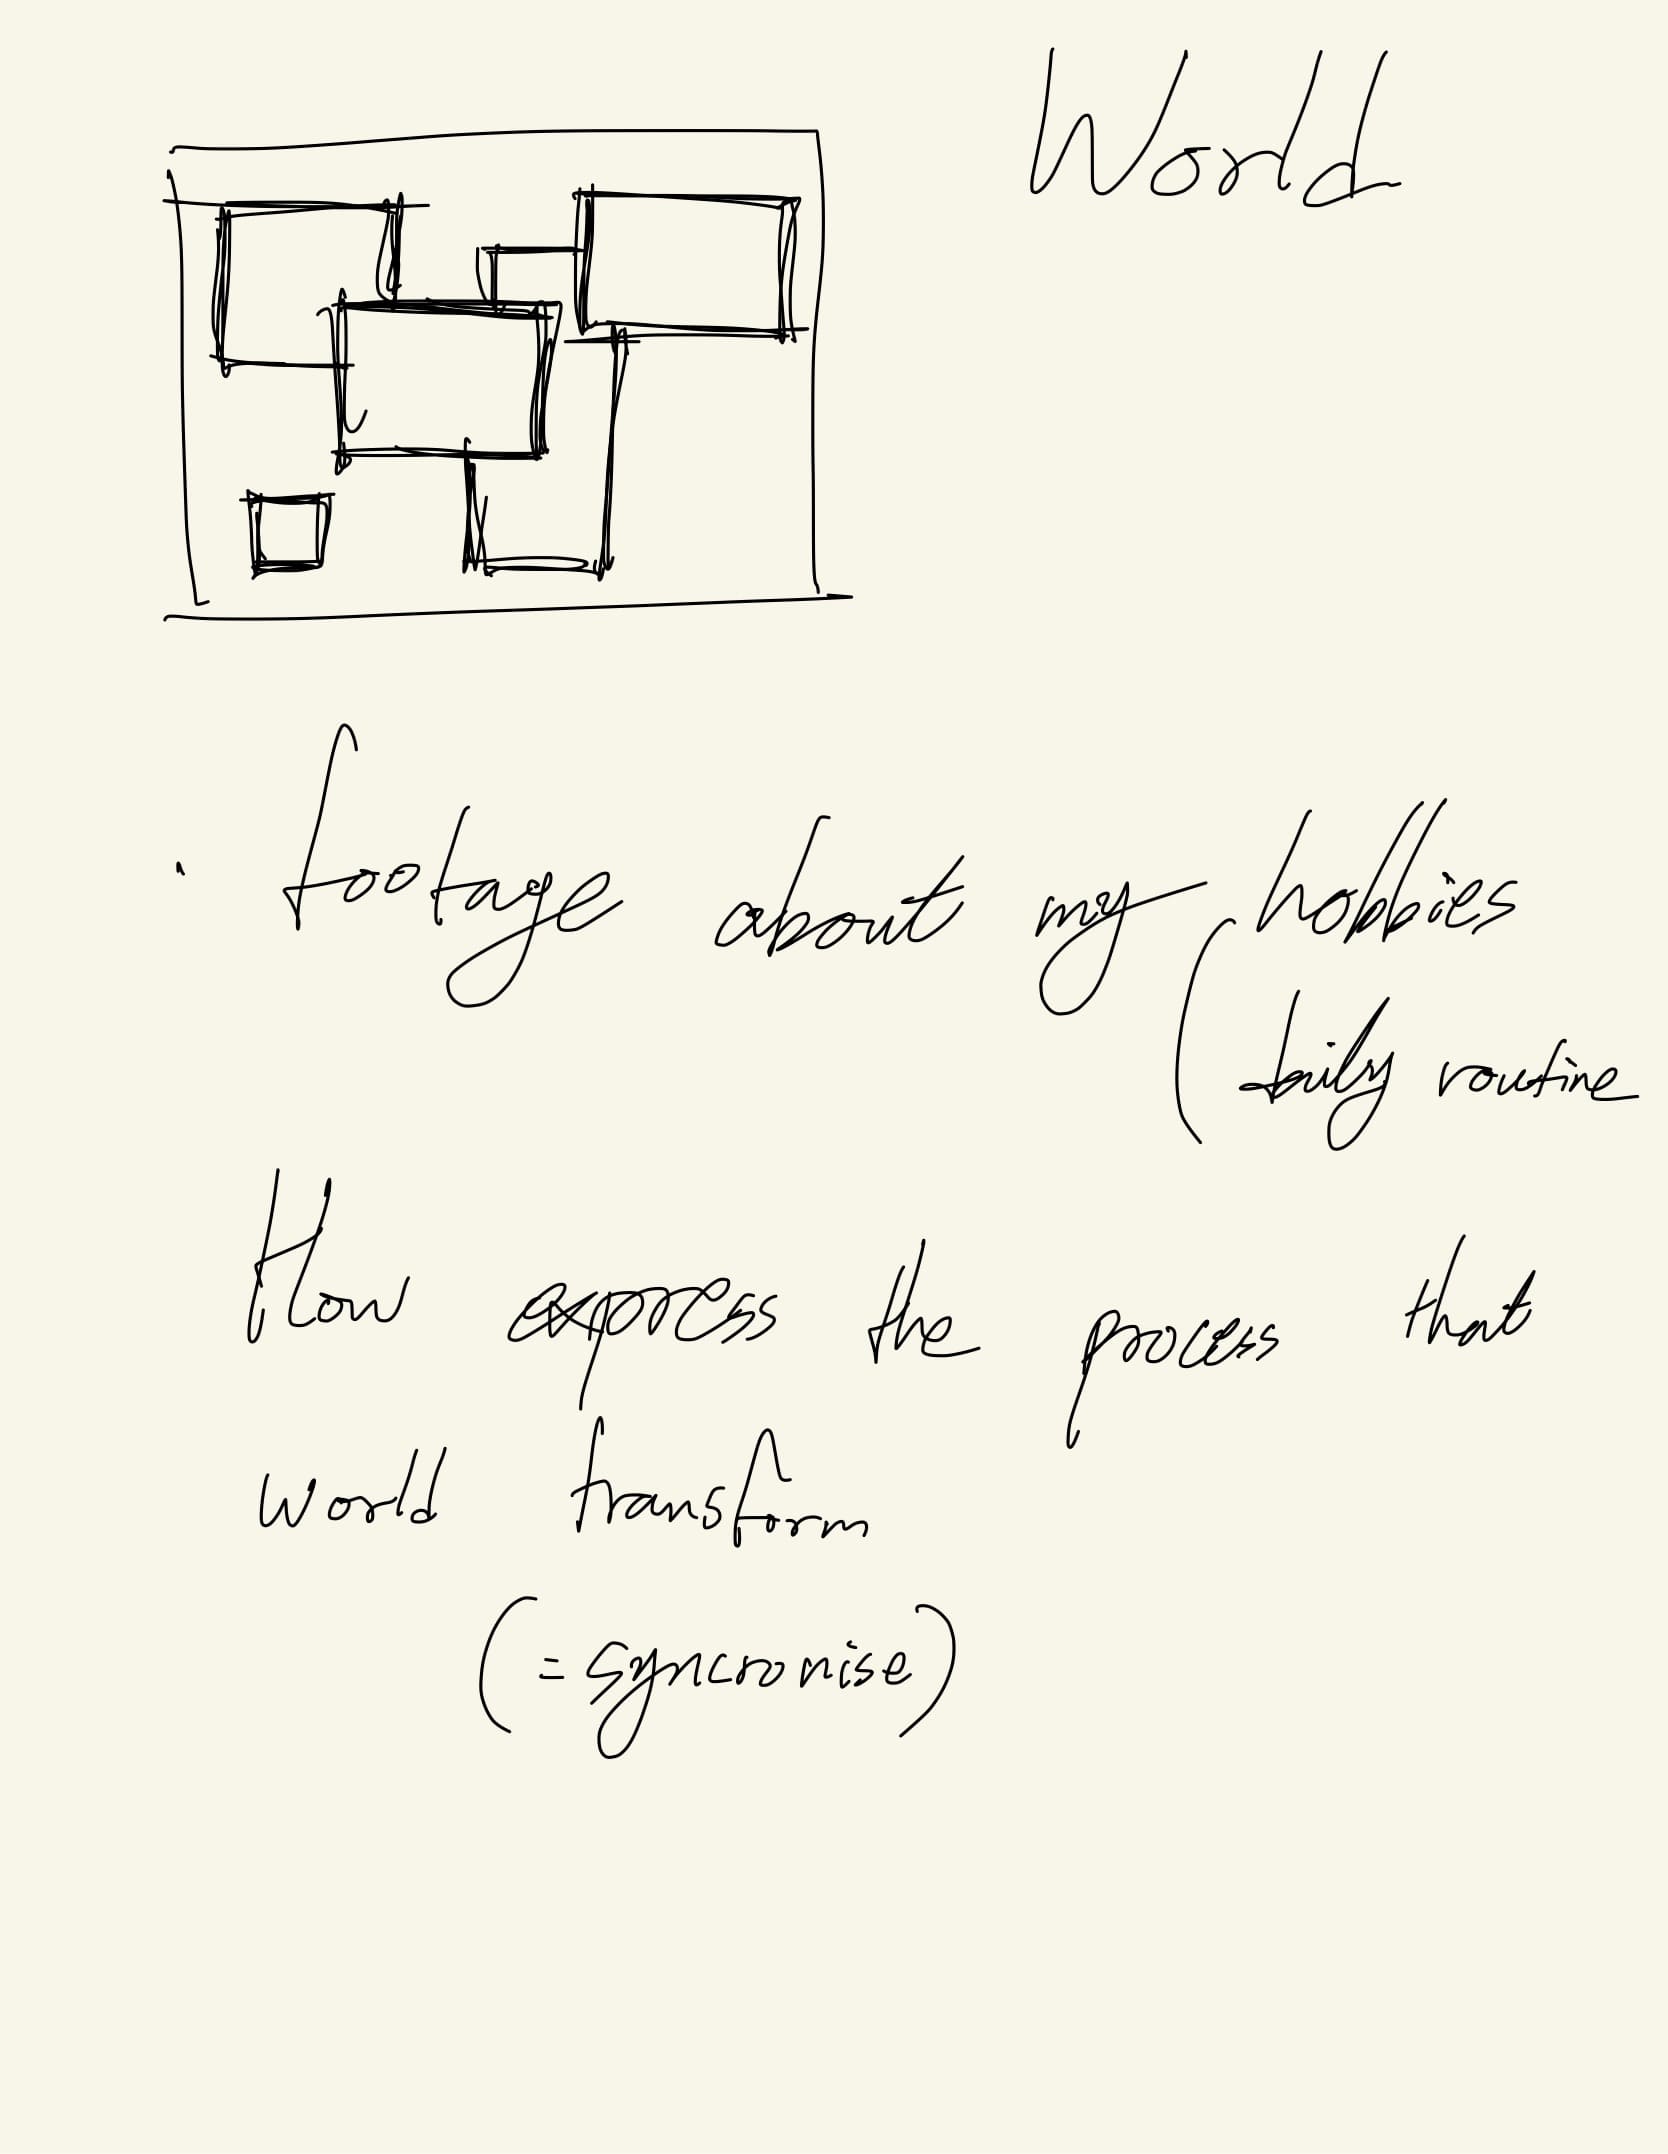 World
· footage about my hobbies
( daily routine
How express the process that
world transform
(= syncronise)